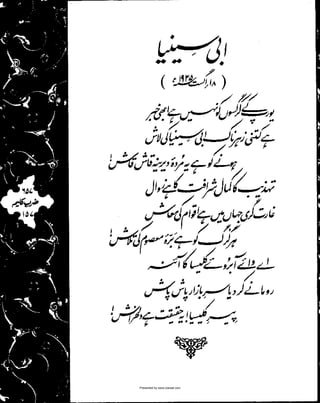 ابی سینیا
( ۱۸ اگست ۱۹۳۵ء )
یورپ کے کرگسوں کو نہیں ہے ابھی خبر
ہے کتنی زہرناک ابی سینیا کی لاش
ہونے کو ہے یہ مردۂ دیرینہ قاش قاش!
تہذیب کا کمال شرافت کا ہے زوال
غارت گری جہاں میں ہے اقوام کی معاش
ہر گرگ کو ہے برۂ معصوم کی تلاش!
اے وائے آبروئے کلیسا کا آئنہ
روما نے کر دیا سر بازار پاش پاش
پیر کلیسیا! یہ حقیقت ہے دلخراش!
۶۵۷
ضرب کلیم
۱۵۷
Presented by www.ziaraat.com